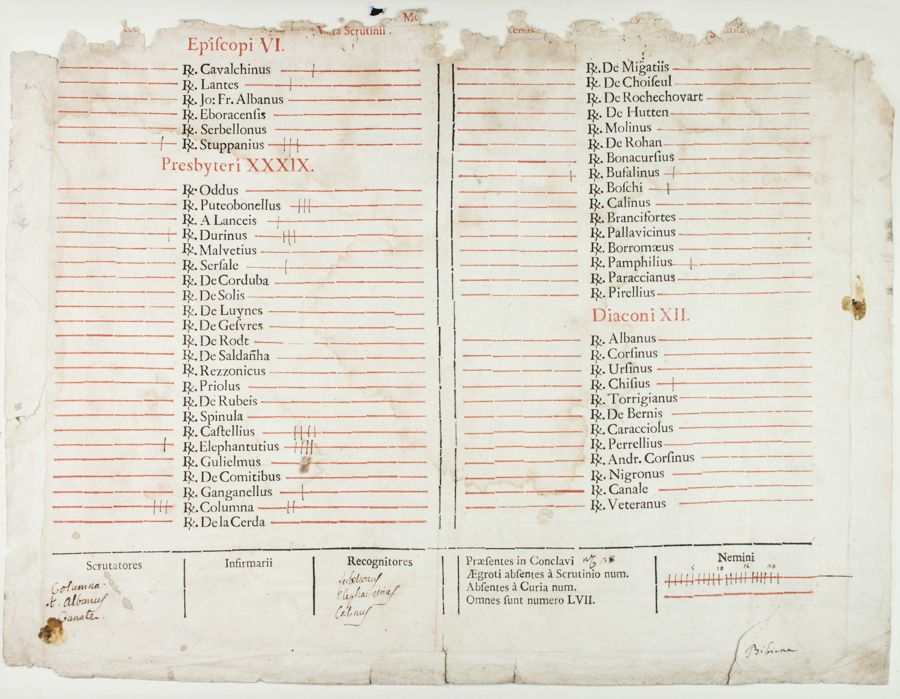 Vota Scrutinii.
Episcopi VI.
℞. Cavalchinus
℞. Lantes
℞. Jo: Fr. Albanus
℞. Eboracensis
℞. Serbellonus
℞. Stuppanius
Presbyteri XXXIX.
℞. Oddus
℞. Puteobonellus
℞. A Lanceis
℞. Durinus
℞. Malvetius
℞. Serſale
℞. De Corduba
℞. De Solis
℞. De Luynes
℞. De Geſvres
℞. De Rodt
℞. De Saldañha
℞. Rezzonicus
℞. Priolus
℞. De Rubeis
℞. Spinula
℞. Caſtellius
℞. Elephantutius
℞. Gulielmus
℞. De Comitibus
℞. Ganganellus
℞. Columna
℞. De la Cerda
℞. De Migatiis
℞. De Choiſeul
℞. De Rochechovart
℞. De Hutten
℞. Molinus
℞. De Rohan
℞. Bonacurſius
℞. Bufalinus
℞. Boſchi
℞. Calinus
℞. Brancifortes
℞. Pallavicinus
℞. Borromæus
℞. Pamphilius
℞. Paraccianus
℞. Pirellius
Diaconi XII.
℞. Albanus
℞. Corſinus
℞. Urſinus
℞. Chiſius
℞. Torrigianus
℞. De Bernis
℞. Caracciolus
℞. Perrellius
℞. Andr. Corſinus
℞. Nigronus
℞. Canale
℞. Veteranus
Scrutatores
Columna
Albanus
Canale
Infirmarii
Recognitores
Serbellonus
Elephantutius
Calinus
Præſentes in Conclavi nº 28
Ægroti abſentes à Scrutinio num.
Abſentes à Curia num.
Omnes ſunt numero LVII.
Nemini
5 10 15 20
Bibiana